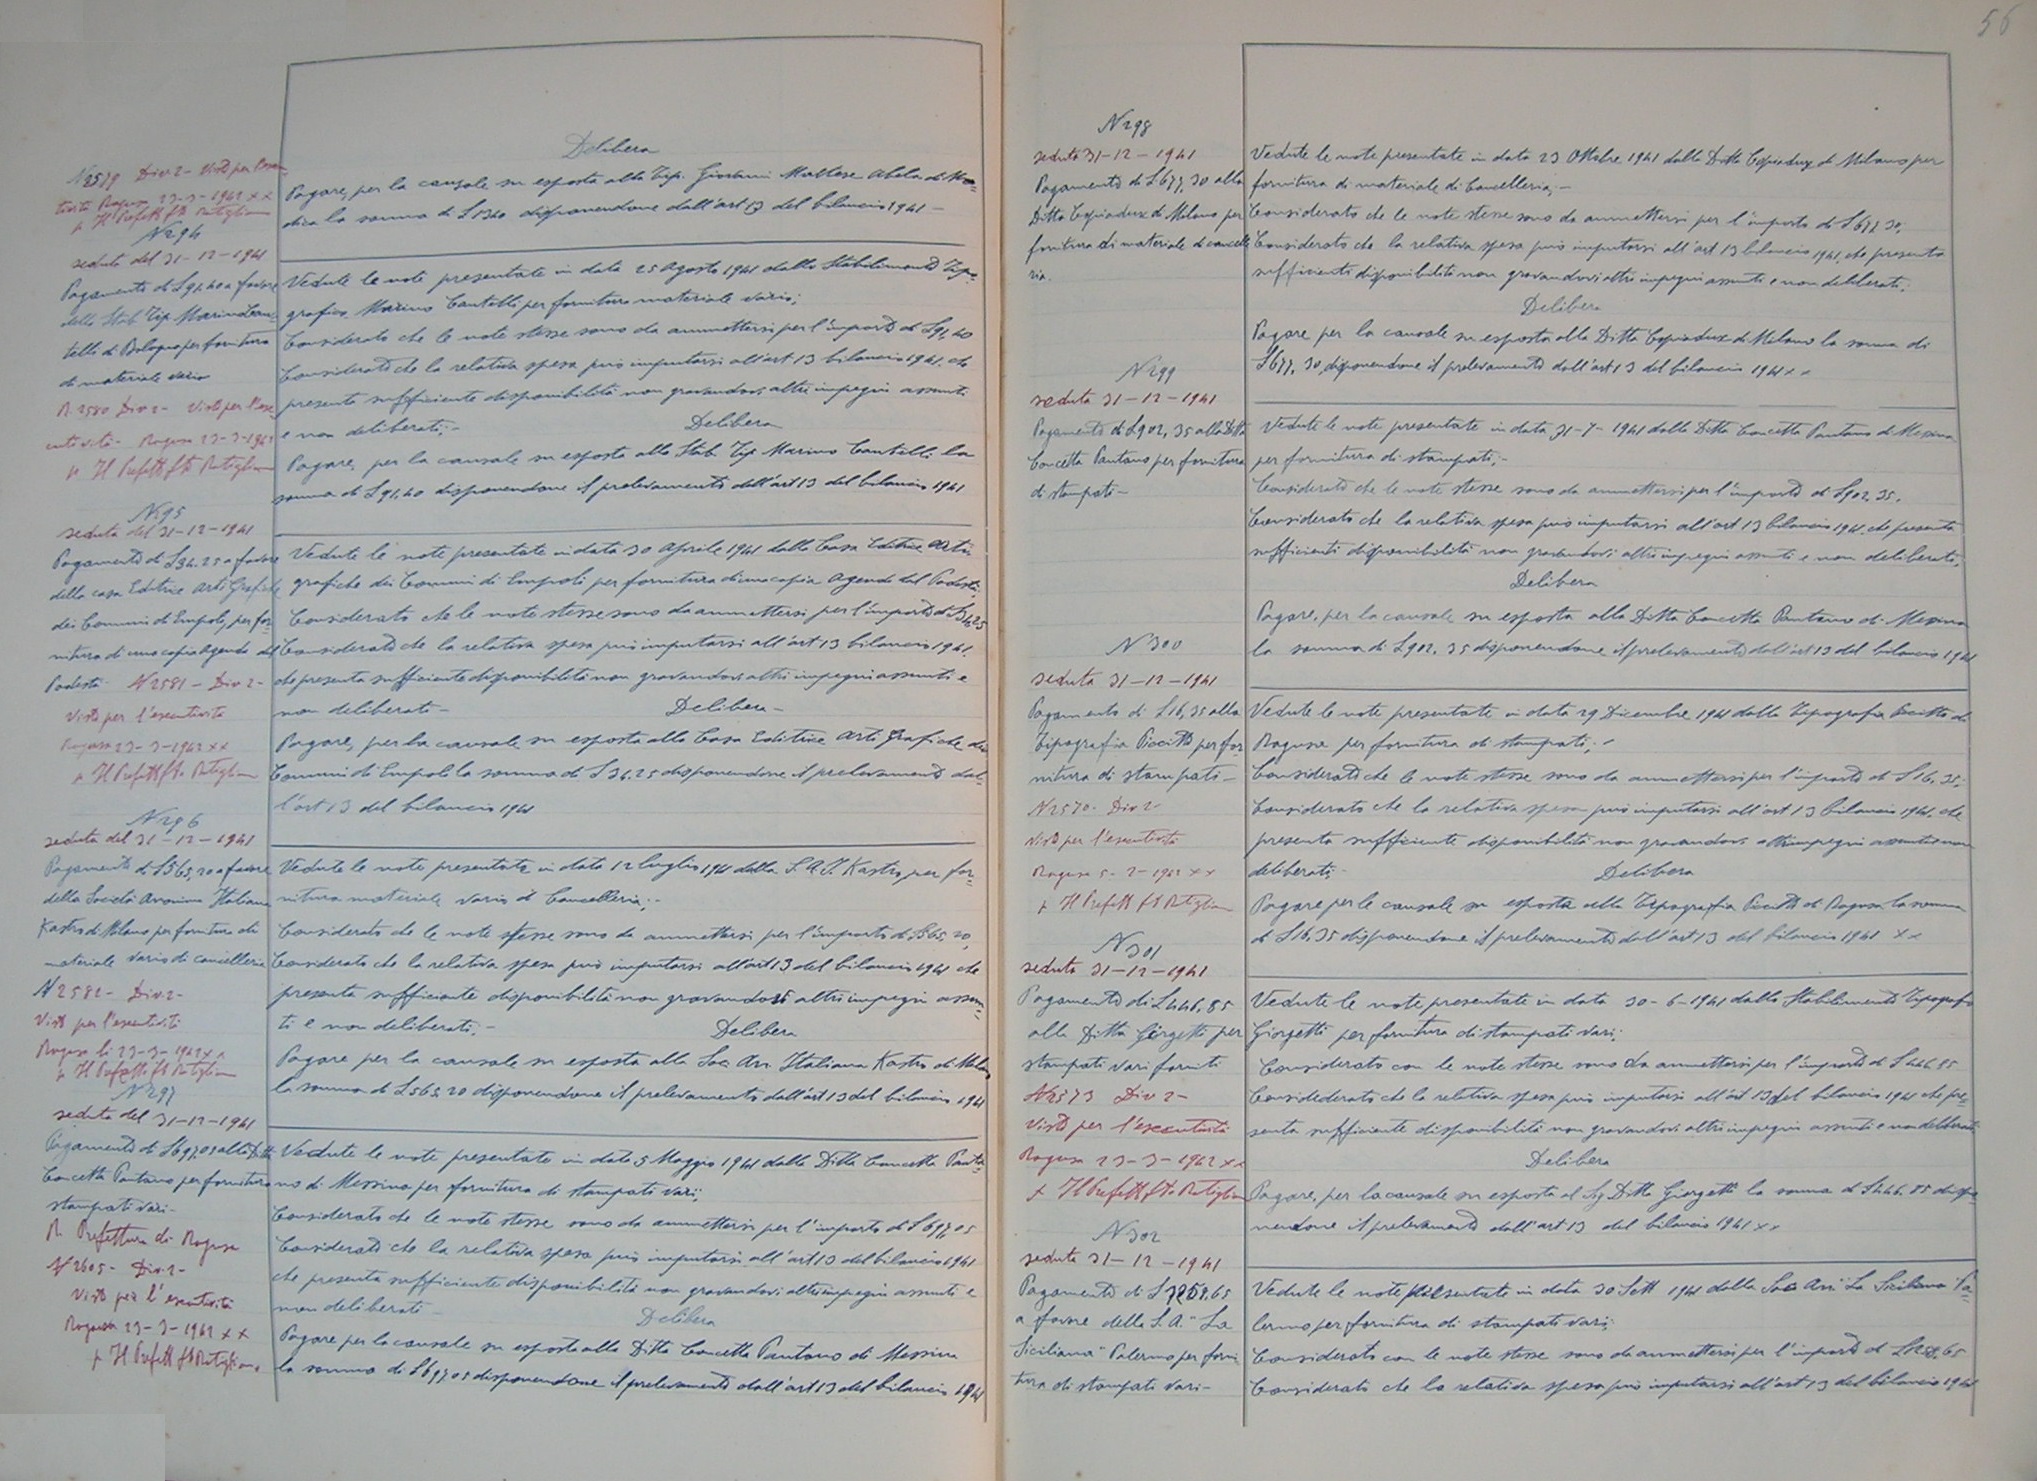 56
N 2579 Div 2- Visto per l'esecu-
tività Ragusa 23-3-1942 XX
p Il Prefetto
N 294
seduta del 31-12-1941
Pagamento di L 91.40 a favore
dello Stab Tip Marino Can-
telli di Bologna per fornitura
di materiale vario
N. 2580 Div 2- Visto per l'ese-
cutività- Ragusa 23-3-1942
p Il Prefetto
N 295
seduta del 31-12-1941
Pagamento di L 34.25 a favore
della casa Editrice Arti Grafiche
dei Comuni di Empoli, per for-
nitura di una copia Agenda del
Podestà N 2581- Div 2-
Visto per l'esecutività
Ragusa 23-3-1942 XX
p Il Prefetto
N 296
seduta del 31-12-1941
Pagamento di L 565,20 a favore
della Società Anonima Italiana
Kastro di Milano per fornitura di
materiale vario di cancelleria
N 2582- Div. 2-
Visto per l'esecutività
Ragusa li 23-3-1942 XX
p Il Prefetto
N 297
seduta del 31-12-1941
Pagamento di L 697,05 alla Ditta
Concetta Pantano per fornitura
stampati vari-
R Prefettura di Ragusa
N 2605- Div. 2-
Visto per l'esecutività
Ragusa 23-3-1942 XX
p Il Prefetto
Delibera
Pagare, per la causale su esposta alla Tip. Giovanni Maltese Abela di Mo-
dica la somma di L 1340 disponendone dall'art 13 del bilancio 1941-
Vedute le note presentate in data 25 Agosto 1941 dallo Stabilimento Tipo-
grafico, Marino Cantelli per fornitura materiale vario;
Considerato che le note stesse sono da ammettersi per l'importo di L 91,40
Considerato che la relativa spesa può imputarsi all'art 13 bilancio 1941. che
presenta sufficiente disponibilità non gravandovi altri impegni assunti
e non deliberati;- Delibera
Pagare, per la causale su esposta allo Stab. Tip Marino Cantelli la
somma di L 91.40 disponendone il prelevamento dall'art 13 del bilancio 1941
Vedute le note presentate in data 30 Aprile 1941 dalla Casa Editrice Arti
grafiche dei Comuni di Empoli per fornitura di una copia Agenda del Podestà;
Considerato che le note stesse sono da ammettersi per l'importo di L 34.25
Considerato che la relativa spesa può imputarsi all'art 13 bilancio 1941.
che presenta sufficiente disponibilità non gravandovi altri impegni assunti e
non deliberati- Delibera-
Pagare, per la causale su esposta alla Casa Editrice Arti Grafiche dei
Comuni di Empoli la somma di L 34.25 disponendone il prelevamento dal-
l'art 13 del bilancio 1941
Vedute le note presentate in data 12 luglio 1941 dalla S.A.I. Kastro, per for-
nitura materiale vario di Cancelleria;-
Considerato che le note stesse sono da ammettersi per l'importo di L 565,20,
Considerato che la relativa spesa può imputarsi all'art 13 del bilancio 1941 che
presenta sufficiente disponibilità non gravandovi altri impegni assun-
ti e non deliberati.- Delibera
Pagare per la causale su esposta alla Soc. An. Italiana Kastro di Milano
la somma di L 565.20 disponendone il prelevamento dall'art 13 del bilancio 1941
Vedute le note presentate in data 5 Maggio 1941 dalla Ditta Concetta Panta-
no di Messina per fornitura di stampati vari;
Considerato che le note stesse sono da ammettersi per l'importo di L 697,05
Considerato che la relativa spesa può imputarsi all'art 13 del bilancio 1941
che presenta sufficiente disponibilità non gravandovi altri impegni assunti e
non deliberati- Delibera
Pagare per la causale su esposta alla Ditta Concetta Pantano di Messina
la somma di L 697,05 disponendone il prelevamento dall'art 13 del bilancio 1941
N 298
seduta 31-12-1941
Pagamento di L 677,30 alla
Ditta Copiadux di Milano per
fornitura di materiale di cancelle
ria.
N 299
seduta 31-12-1941
Pagamento di L 902,35 alla Ditta
Concetta Pantano per fornitura
di stampati-
N 300
seduta 31-12-1941
Pagamento di L 16,35 alla
Tipografia Piccitto per for-
nitura di stampati-
N 2570- Div 2-
Visto per l'esecutività
Ragusa 5-2-1942 XX
p Il Prefetto
N 301
seduta 31-12-1941
Pagamento di L 446,85
alla Ditta Giorgetti per
stampati vari forniti
N 2573 Div 2-
Visto per l'esecutività
Ragusa 23-3-1942 XX
p Il Prefetto
N 302
seduta 31-12-1941
Pagamento di L
a favore della S.A. "La
Siciliana" Palermo per forni
tura di stampati vari-
Vedute le note presentate in data 23 Ottobre 1941 dalla Ditta Copiadux di Milano per
fornitura di materiale di Cancelleria;-
Considerato che le note stesse sono da ammettersi per l'importo di L 677,30;
Considerato che la relativa spesa può imputarsi all'art 13 bilancio 1941, che presenta
sufficiente disponibilità non gravandovi altri impegni assunti e non deliberati;
Delibera
Pagare per la causale su esposta alla Ditta Copiadux di Milano la somma di
L 677,30, disponendone il prelevamento dall'art 13 del bilancio 1941 XX
Vedute le note presentate in data 31-7-1941 dalla Ditta Concetta Pantano di Messina
per fornitura di stampati;-
Considerato che le note stesse sono da ammettersi per l'importo di L 902,35.
Considerato che la relativa spesa può imputarsi all'art 13 bilancio 1941, che presenta
sufficienti disponibilità non gravandovi altri impegni assunti e non deliberati.
Delibera
Pagare, per la causale su esposta alla Ditta Concetta Pantano di Messina
la somma di L 902.35 disponendone il prelevamento dall'art 13 del bilancio 1941
Vedute le note presentate in data 29 Dicembre 1941 dalla Tipografia Piccitto di
Ragusa per fornitura di stampati;-
Considerato che le note stesse sono da ammettersi per l'importo di L 16,35;
Considerato che la relativa spesa può imputarsi all'art 13 bilancio 1941. che
presenta sufficiente disponibilità non gravandovi altri impegni assunti e non
deliberati;- Delibera
Pagare per la causale su esposta alla Tipografia Piccitto di Ragusa la somma
di L 16,35 disponendone il prelevamento dall'art 13 del bilancio 1941 XX
Vedute le note presentate in data 30-6-1941 dallo Stabilimento Tipografo
Giorgetti per fornitura di stampati vari;
Considerato con le note stesse sono da ammettersi per l'importo di L 446.85
Considederato che la relativa spesa può imputarsi all'art 13 del bilancio 1941 che pre-
senta sufficiente disponibilità non gravandovi altri impegni assunti e non deliberati
Delibera
Pagare, per la causale su esposta al Sig Ditta Giorgetti la somma di L 446.85 dispo-
nendone il prelevamento dall'art 13 del bilancio 1941 XX
Vedute le note presentate in data 30 Sett 1941 dalla Soc An. "La Siciliana" Pa-
lermo per fornitura di stampati vari;
Considerato con le note stesse sono da ammettersi per l'importo di L
Considerato che la relativa spesa può imputarsi all'art 13 del bilancio 1941